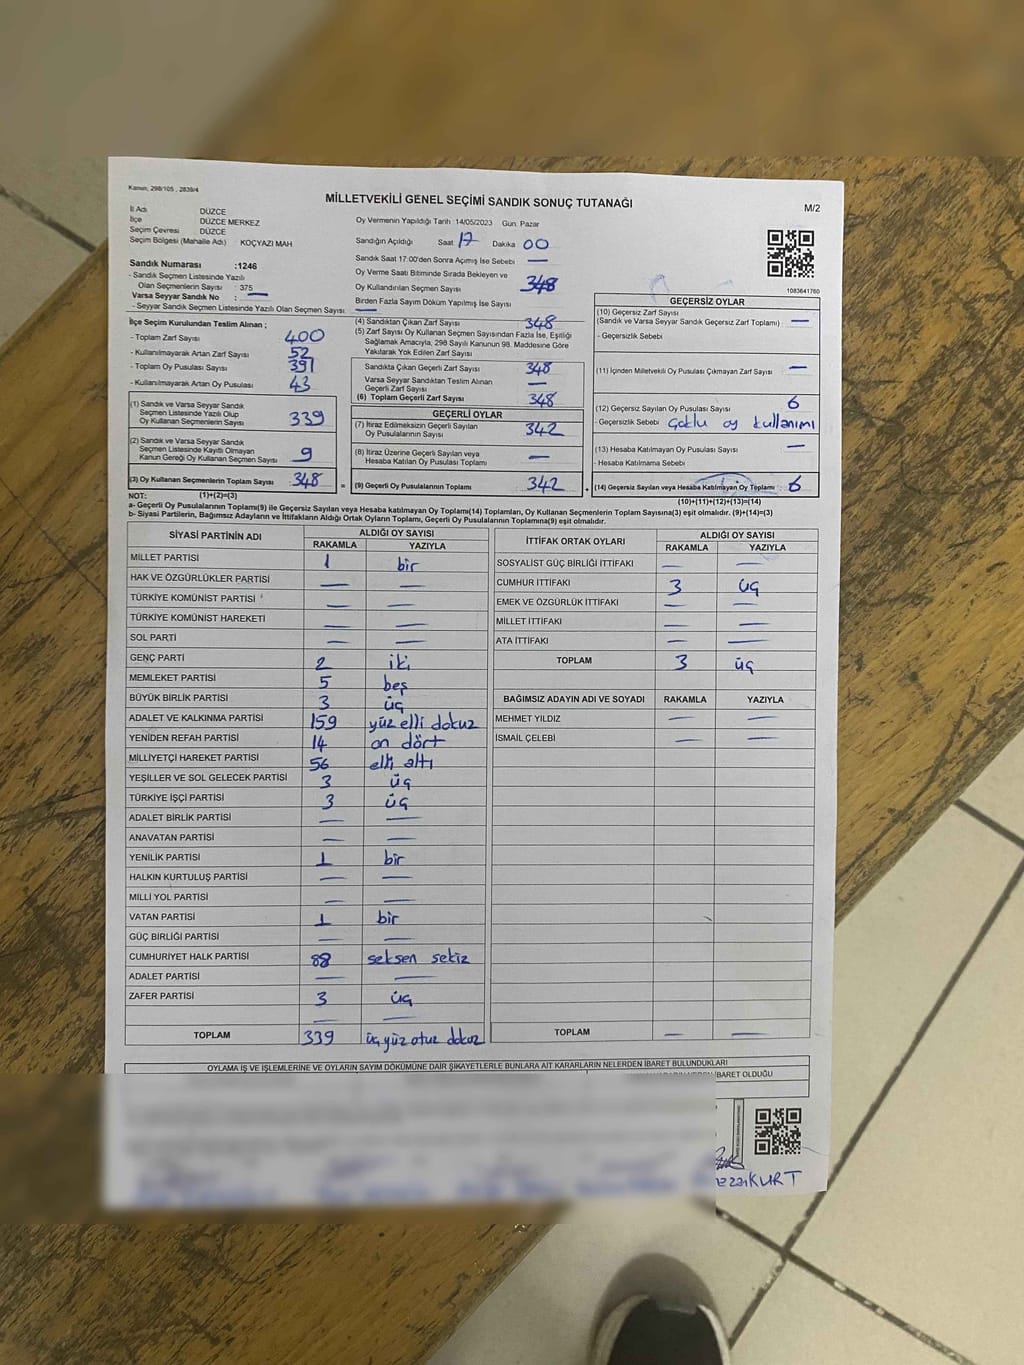 Kanun, 298/105 , 2839/4
MİLLETVEKİLİ GENEL SEÇİMİ SANDIK SONUÇ TUTANAĞI
M/2
İl Adı DÜZCE
İlçe DÜZCE MERKEZ
Seçim Çevresi DÜZCE
Seçim Bölgesi (Mahalle Adı) KOÇYAZI MAH
Sandık Numarası :1246
- Sandık Seçmen Listesinde Yazılı
Olan Seçmenlerin Sayısı : 375
Varsa Seyyar Sandık No : —
- Seyyar Sandık Seçmen Listesinde Yazılı Olan Seçmen Sayısı: —
Oy Vermenin Yapıldığı Tarih :14/05/2023 Gün: Pazar
Sandığın Açıldığı Saat 17 Dakika 00
Sandık Saat 17:00'den Sonra Açımış İse Sebebi —
Oy Verme Saati Bitiminde Sırada Bekleyen ve
Oy Kullandırılan Seçmen Sayısı 348
Birden Fazla Sayım Döküm Yapılmış İse Sayısı
1083641760
İlçe Seçim Kurulundan Teslim Alınan ;
- Toplam Zarf Sayısı 400
- Kullanılmayarak Artan Zarf Sayısı 52
- Toplam Oy Pusulası Sayısı 391
- Kullanılmayarak Artan Oy Pusulası 43
(1) Sandık ve Varsa Seyyar Sandık
Seçmen Listesinde Yazılı Olup
Oy Kullanan Seçmenlerin Sayısı 339
(2) Sandık ve Varsa Seyyar Sandık
Seçmen Listesinde Kayıtlı Olmayan
Kanun Gereği Oy Kullanan Seçmen Sayısı 9
(3) Oy Kullanan Seçmenlerin Toplam Sayısı 348
(4) Sandıktan Çıkan Zarf Sayısı 348
(5) Zarf Sayısı Oy Kullanan Seçmen Sayısından Fazla İse, Eşitliği
Sağlamak Amacıyla, 298 Sayılı Kanunun 98. Maddesine Göre
Yakılarak Yok Edilen Zarf Sayısı
Sandıkta Çıkan Geçerli Zarf Sayısı 348
Varsa Seyyar Sandıktan Teslim Alınan
Geçerli Zarf Sayısı —
(6) Toplam Geçerli Zarf Sayısı 348
GEÇERLİ OYLAR
(7) İtiraz Edilmeksizin Geçerli Sayılan
Oy Pusulalarının Sayısı 342
(8) İtiraz Üzerine Geçerli Sayılan veya
Hesaba Katılan Oy Pusulası Toplamı —
= (9) Geçerli Oy Pusulalarının Toplamı 342
GEÇERSİZ OYLAR
(10) Geçersiz Zarf Sayısı
(Sandık ve Varsa Seyyar Sandık Geçersiz Zarf Toplamı) —
- Geçersizlik Sebebi
(11) İçinden Milletvekili Oy Pusulası Çıkmayan Zarf Sayısı —
(12) Geçersiz Sayılan Oy Pusulası Sayısı 6
- Geçersizlik Sebebi Çoklu oy kullanımı
(13) Hesaba Katılmayan Oy Pusulası Sayısı —
- Hesaba Katılmama Sebebi
(14) Geçersiz Sayılan veya Hesaba Katılmayan Oy Toplamı : 6
NOT: (1)+(2)=(3)
(10)+(11)+(12)+(13)=(14)
a- Geçerli Oy Pusulalarının Toplamı(9) ile Geçersiz Sayılan veya Hesaba katılmayan Oy Toplamı(14) Toplamları, Oy Kullanan Seçmenlerin Toplam Sayısına(3) eşit olmalıdır. (9)+(14)=(3)
b- Siyasi Partilerin, Bağımsız Adayların ve İttifakların Aldığı Ortak Oyların Toplamı, Geçerli Oy Pusulalarının Toplamına(9) eşit olmalıdır.
SİYASİ PARTİNİN ADI ALDIĞI OY SAYISI
RAKAMLA YAZIYLA
MİLLET PARTİSİ 1 bir
HAK VE ÖZGÜRLÜKLER PARTİSİ — —
TÜRKİYE KOMÜNİST PARTİSİ — —
TÜRKİYE KOMÜNİST HAREKETİ — —
SOL PARTİ — —
GENÇ PARTİ 2 iki
MEMLEKET PARTİSİ 5 beş
BÜYÜK BİRLİK PARTİSİ 3 üç
ADALET VE KALKINMA PARTİSİ 159 yüz elli dokuz
YENİDEN REFAH PARTİSİ 14 on dört
MİLLİYETÇİ HAREKET PARTİSİ 56 elli altı
YEŞİLLER VE SOL GELECEK PARTİSİ 3 üç
TÜRKİYE İŞÇİ PARTİSİ 3 üç
ADALET BİRLİK PARTİSİ — —
ANAVATAN PARTİSİ — —
YENİLİK PARTİSİ 1 bir
HALKIN KURTULUŞ PARTİSİ — —
MİLLİ YOL PARTİSİ — —
VATAN PARTİSİ 1 bir
GÜÇ BİRLİĞİ PARTİSİ — —
CUMHURİYET HALK PARTİSİ 88 seksen sekiz
ADALET PARTİSİ — —
ZAFER PARTİSİ 3 üç
— —
TOPLAM 339 üç yüz otuz dokuz
İTTİFAK ORTAK OYLARI ALDIĞI OY SAYISI
RAKAMLA YAZIYLA
SOSYALİST GÜÇ BİRLİĞİ İTTİFAKI — —
CUMHUR İTTİFAKI 3 üç
EMEK VE ÖZGÜRLÜK İTTİFAKI — —
MİLLET İTTİFAKI — —
ATA İTTİFAKI — —
TOPLAM 3 üç
BAĞIMSIZ ADAYIN ADI VE SOYADI RAKAMLA YAZIYLA
MEHMET YILDIZ — —
İSMAİL ÇELEBİ — —
TOPLAM — —
OYLAMA İŞ VE İŞLEMLERİNE VE OYLARIN SAYIM DÖKÜMÜNE DAİR ŞİKAYETLERLE BUNLARA AİT KARARLARIN NELERDEN İBARET BULUNDUKLARI
İBARET OLDUĞU
KURT